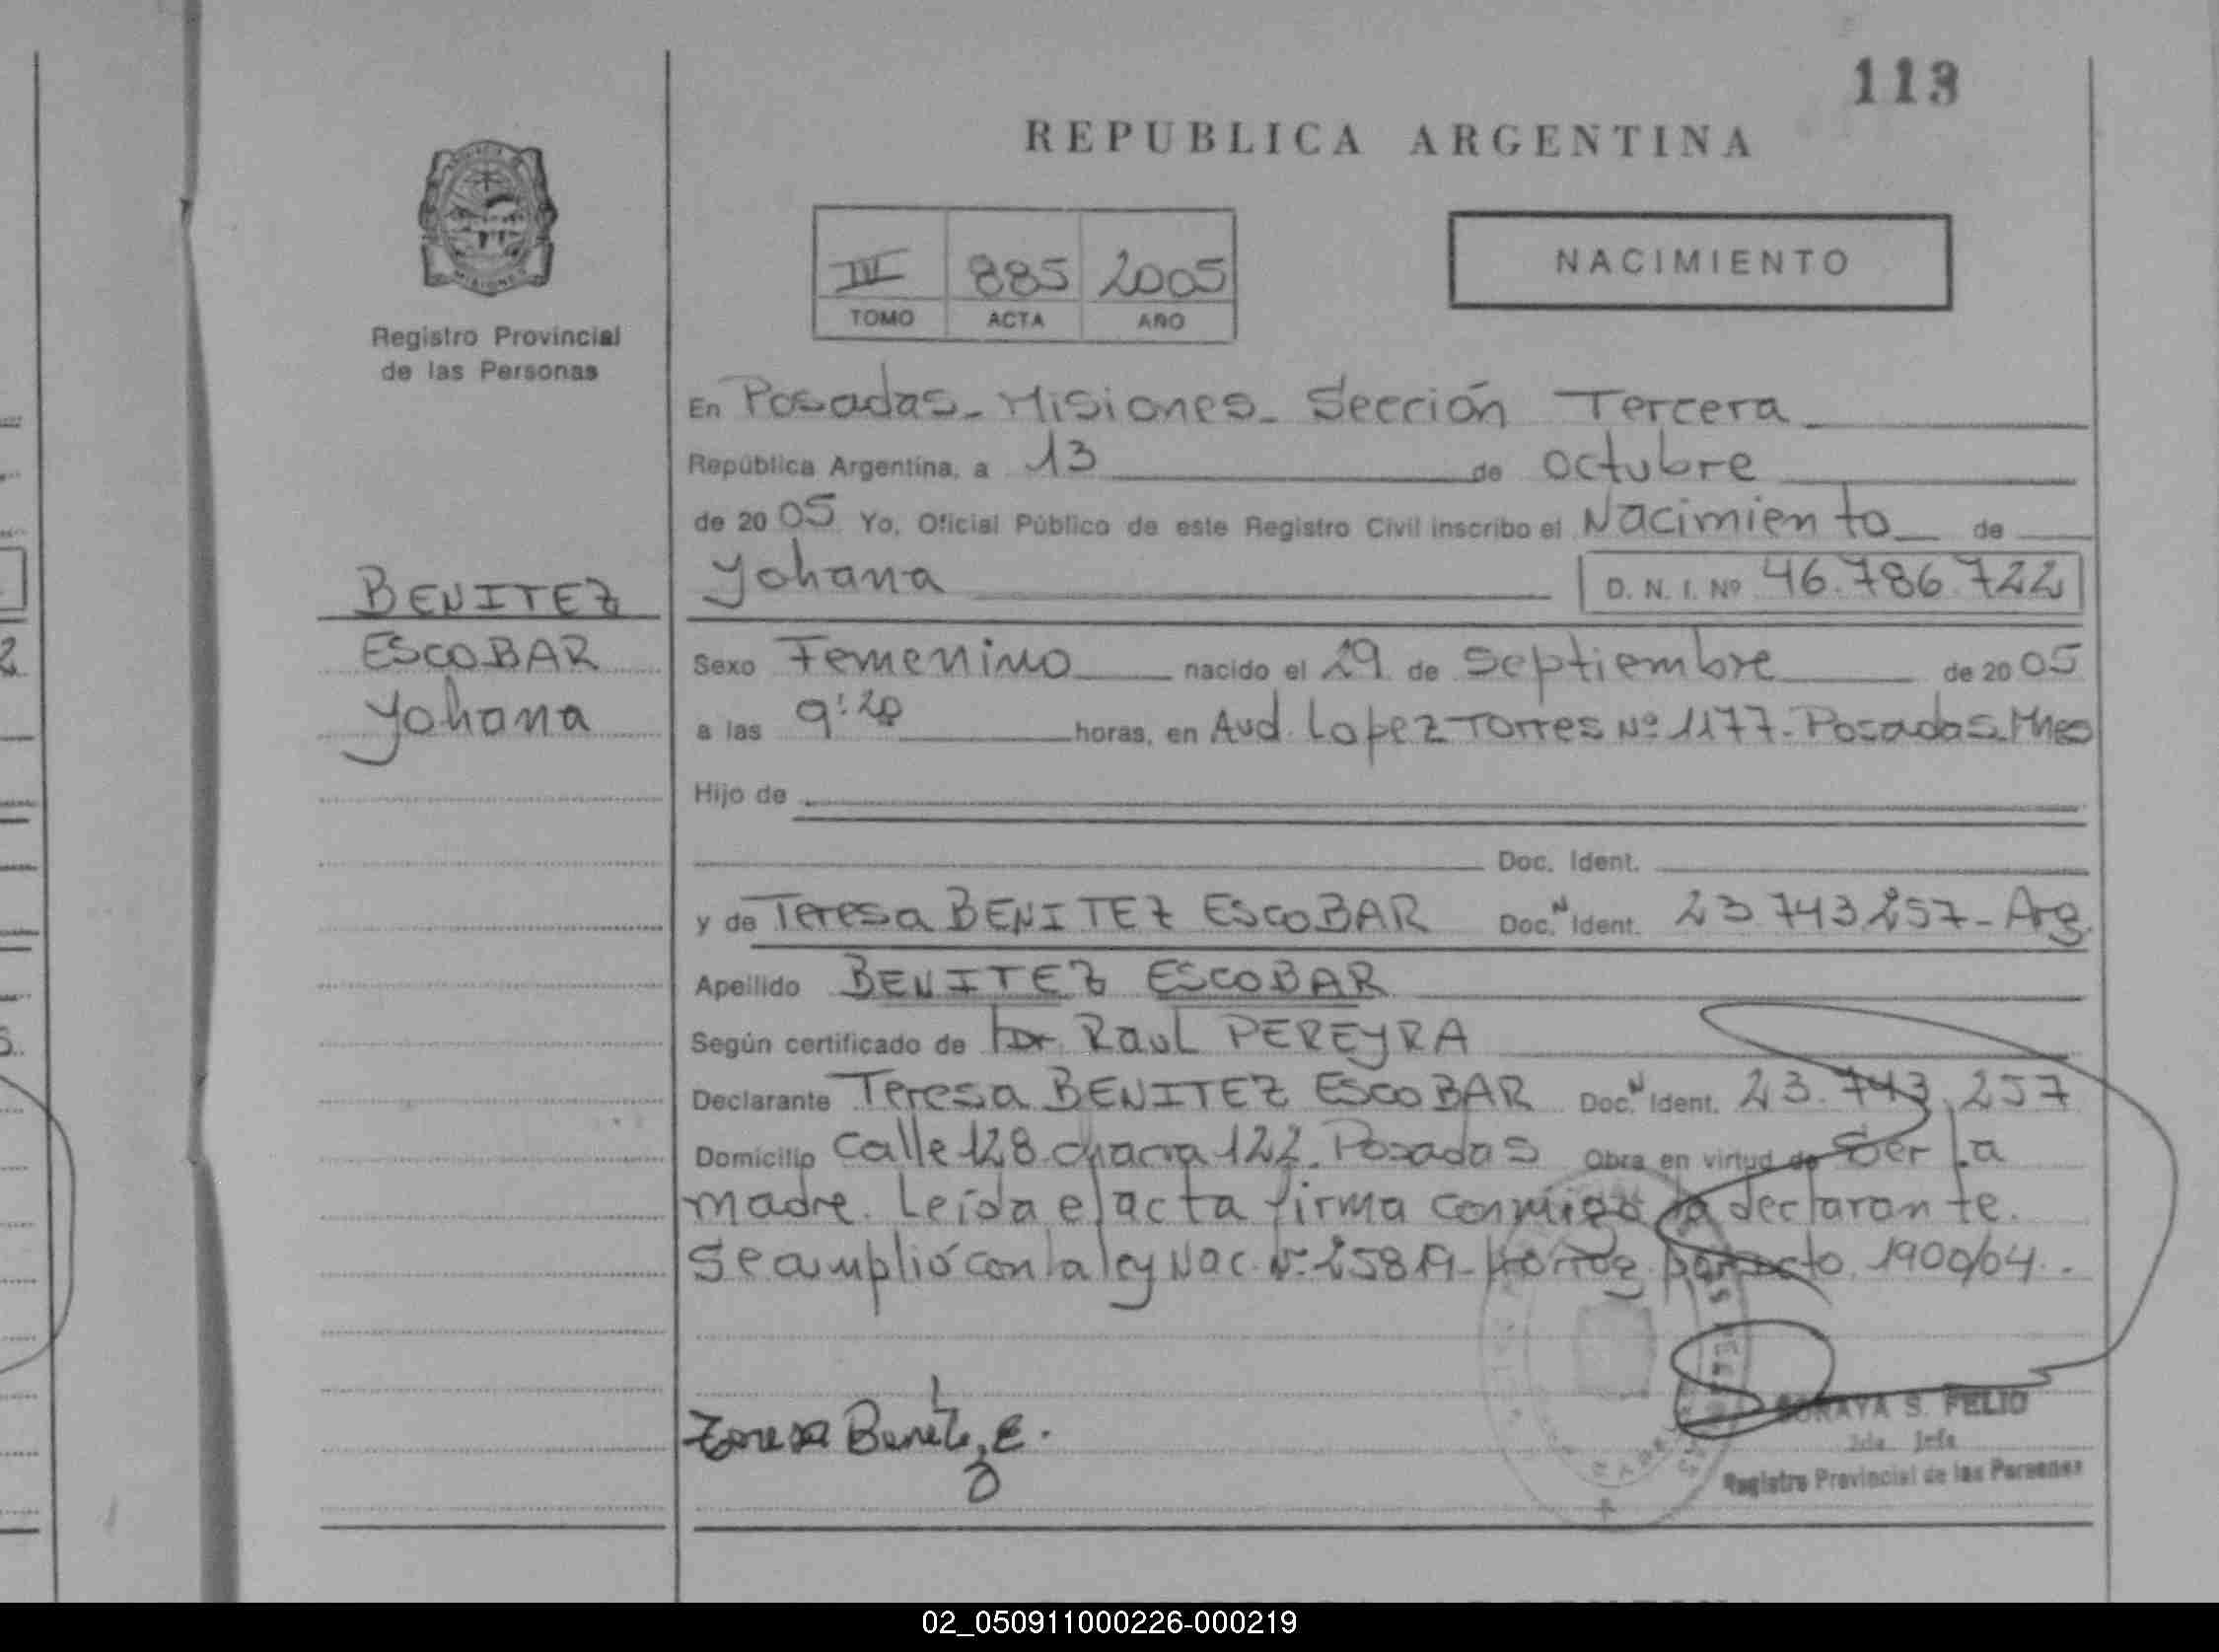 113
REPUBLICA ARGENTINA
MISIONES
Registro Provincial
de las Personas
885 2005
TOMO ACTA AÑO
NACIMIENTO
En Posadas - Misiones - Sección Tercera
República Argentina, a 13 de octubre
de 2005 Yo, Oficial Público de este Registro Civil inscribo el Nacimiento de
Yohana D. N. I. Nº 46.786.722
BENITEZ
ESCOBAR
Yohana
Sexo Femenino nacido el 29 de Septiembre de 2005
a las 9:20 horas, en Avd. Lopez Torres Nº 1177 - Posadas - Mnes
Hijo de
Doc. Ident.
y de Teresa BENITEZ ESCOBAR Doc. N Ident. 23.743.257 - Arg.
Apellido BENITEZ ESCOBAR
Según certificado de Dr. Raul PEREYRA
Declarante Teresa BENITEZ ESCOBAR Doc. N Ident. 23.743.257
Domicilio Calle 128 chacra 122. Posadas Obra en virtud de Ser la
madre. Leída el acta firma conmigo la declarante.
Se amplió con la ley Nac. Nº 25819 1900/04.
Teresa Benitez E.
SORAYA S. FELIO
Jefa
Registro Provincial de las Personas
02_050911000226-000219